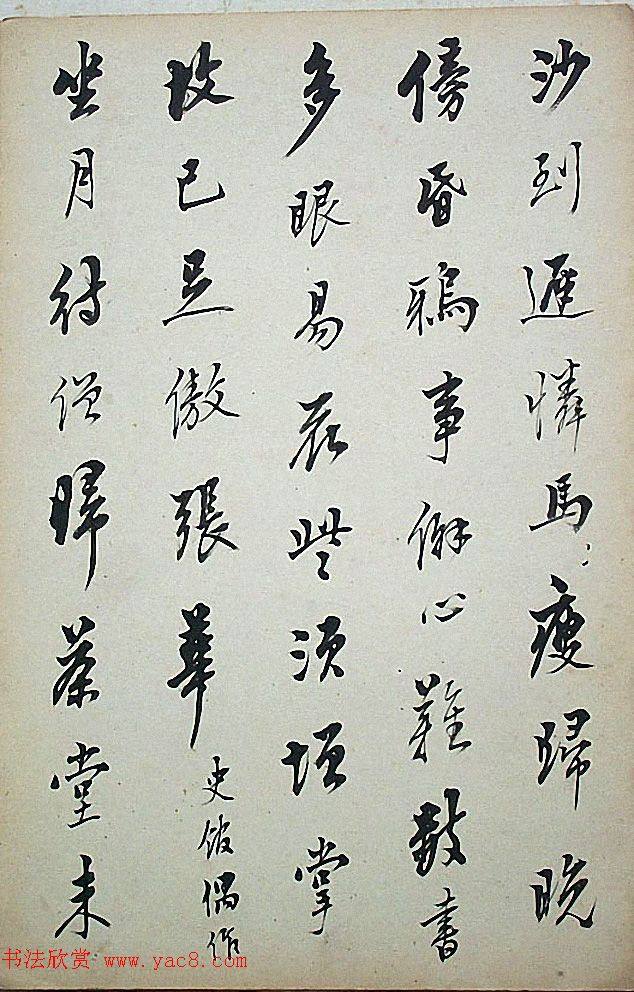 沙到遲憐馬瘦歸晚
傍昏鴉事僻心難數書
多眼易花些須墳掌
故已足傲張華
史館偶作
坐月待僧歸茶堂未
书法欣赏 www.yac8.com